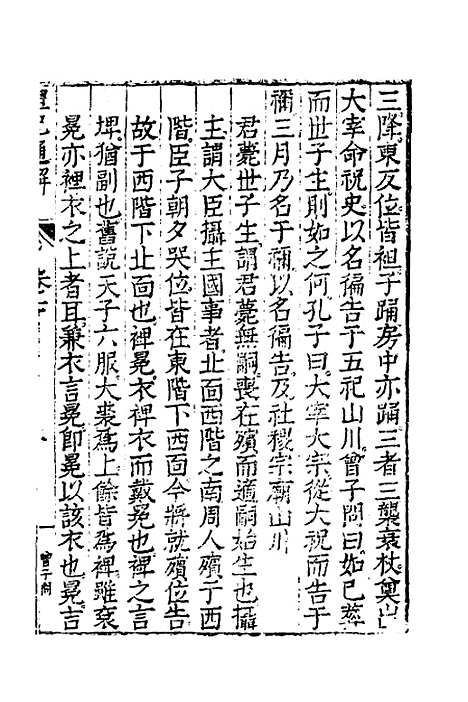 三降東反位皆袒子踊房中亦踊三者三襲衰杖奠出
大宰命祝史以名徧告于五祀山川曾子問曰如已葬
而世子生則如之何孔子曰大宰大宗從大祝而告于
禰三月乃名于禰以名徧告及社稷宗廟山川
君薨世子生謂君薨無嗣喪在殯而適嗣始生也攝
主謂大臣攝主國事者北面西階之南周人殯于西
階臣子朝夕哭位皆在東階下西面今將就殯位告
故于西階下北面也裨冕衣裨衣而戴冕也裨之言
埤猶副也舊說天子六服大裘爲上餘皆爲裨雖袞
冕亦裨衣之上者耳兼衣言冕卽冕以該衣也冕言
禮記通解
卷七
曾子問